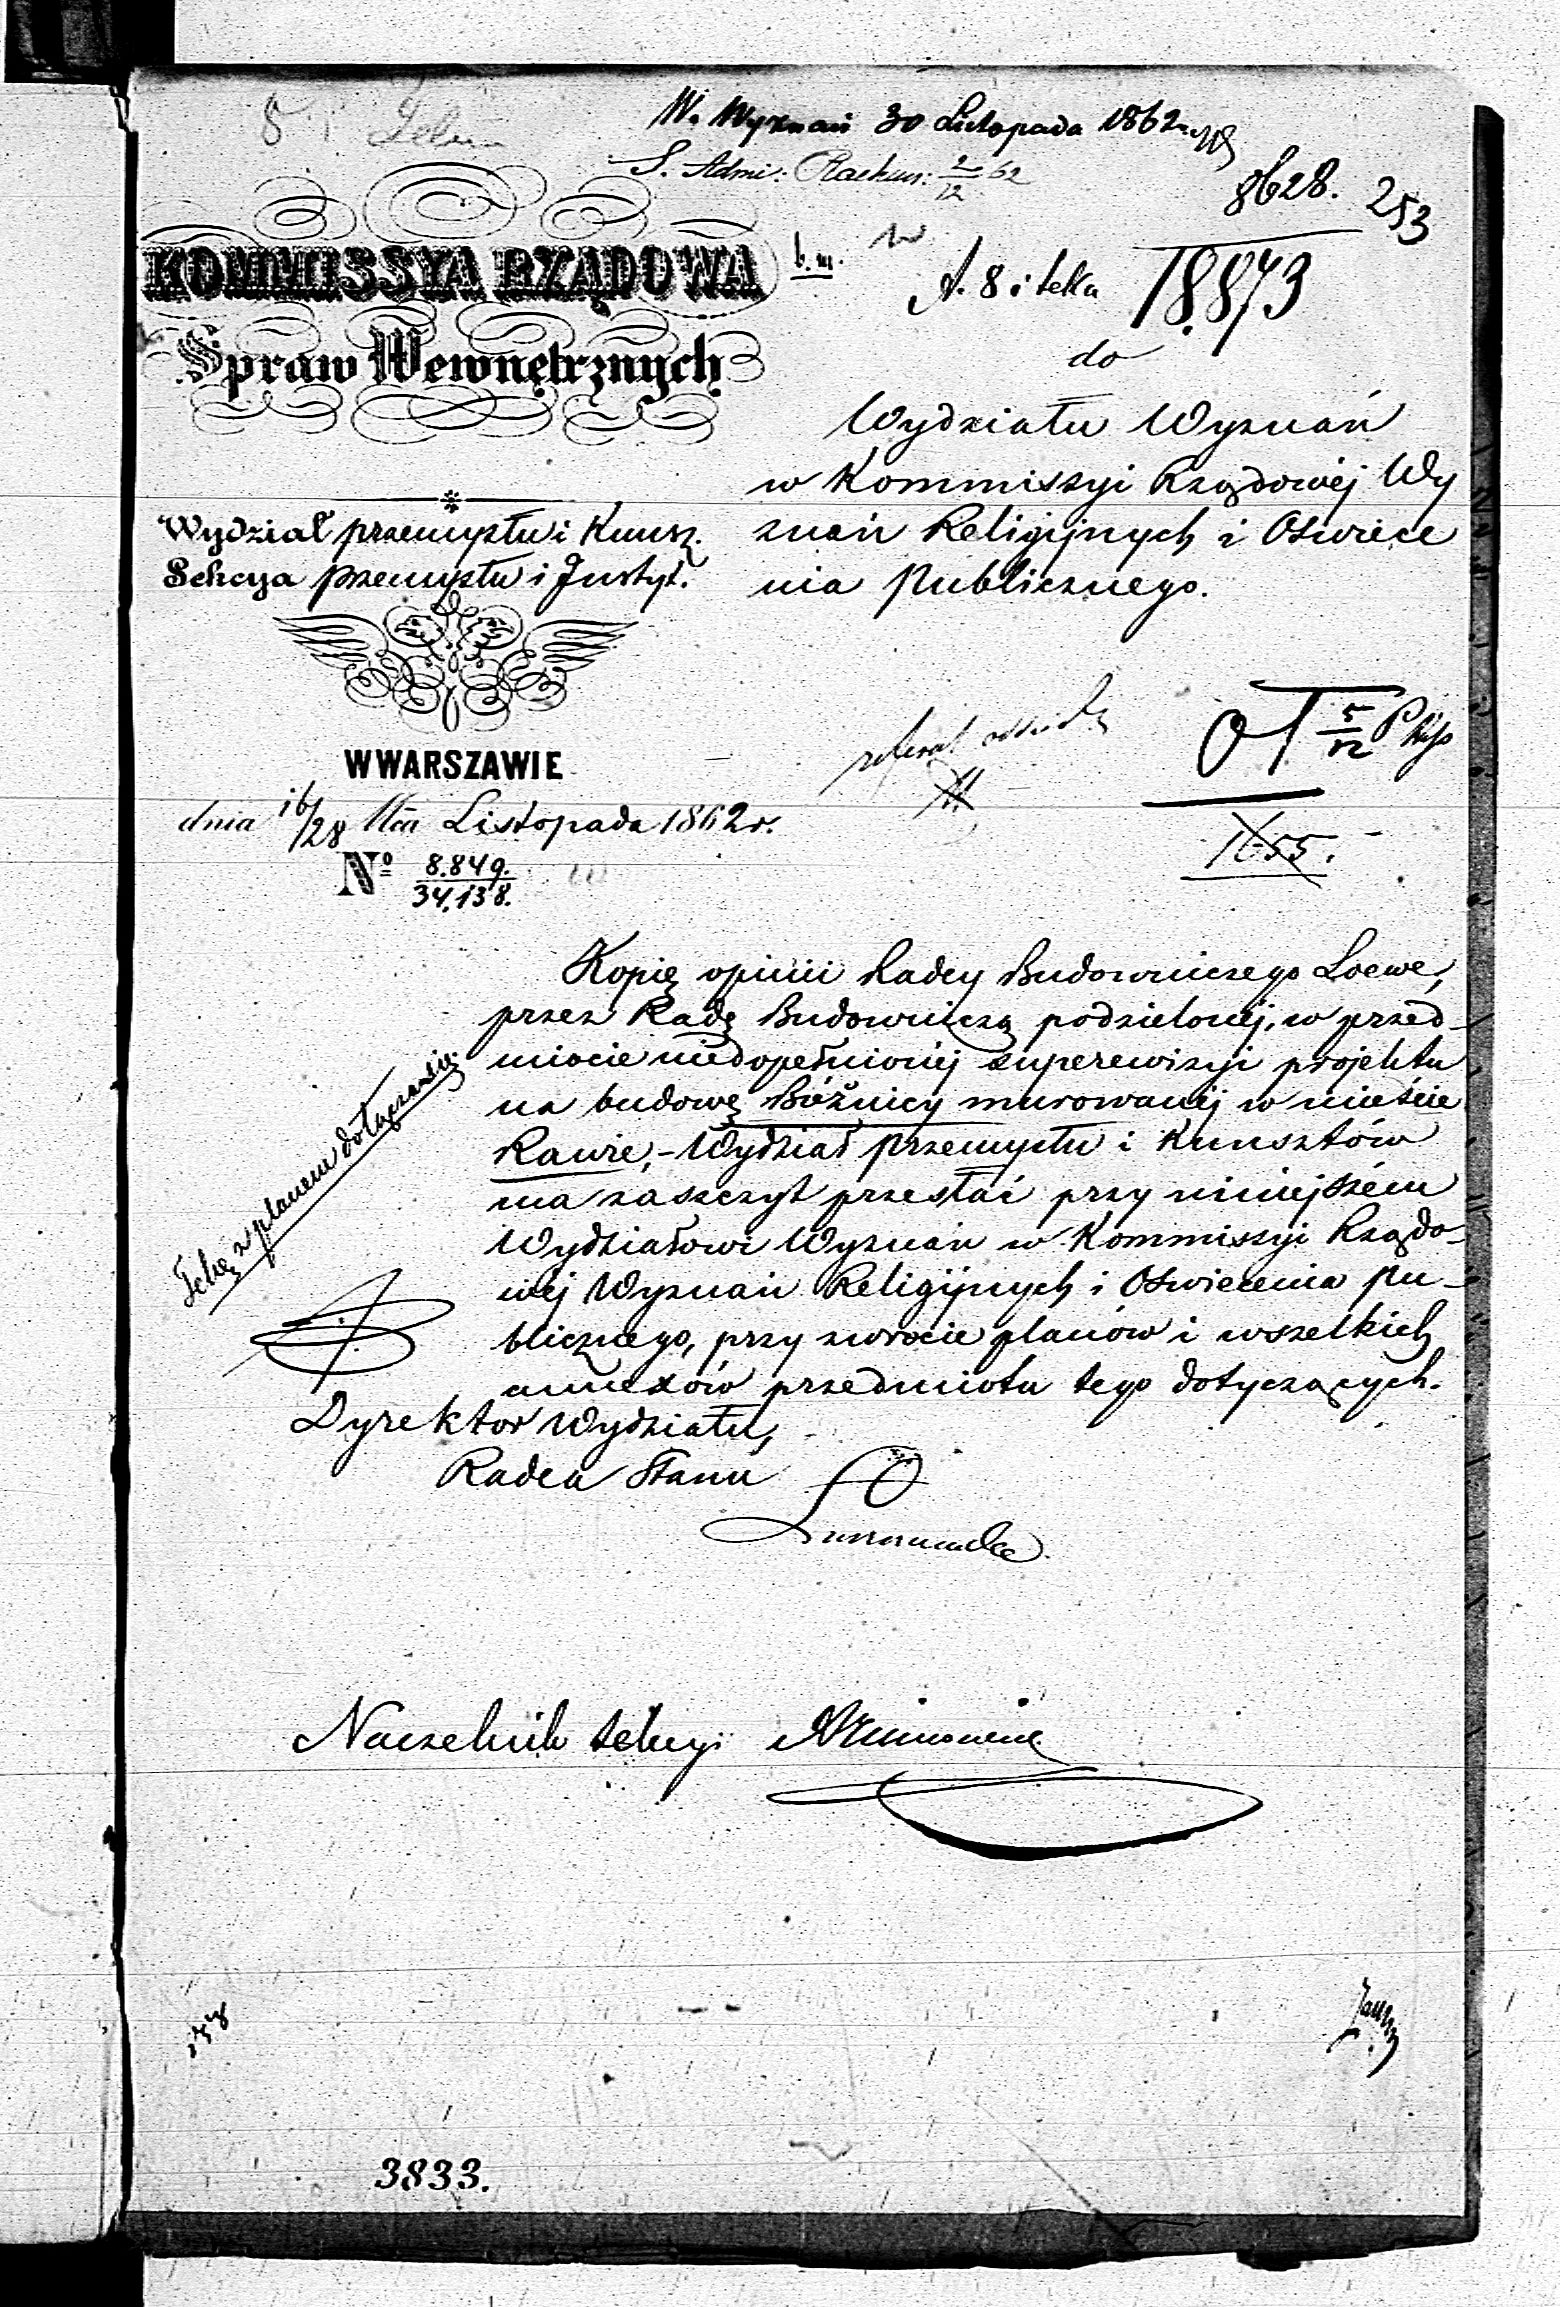 W. Wyznań 30 Listopada 1862
S. Admi: Rachun: 2/12 62
8628. 253
18.873
b. m.
A. 8 i teka
KOMMISSYA RZĄDOWA
Spraw Wewnętrznych
do
Wydziału Wyznań
w Kommissyi Rządowéj Wy
znań Religijnych i Oświece
nia Publicznego.
Wydział przemysłu i Kunsz.
Sekcya przemysłu i Instyt.
W WARSZAWIE
dnia 16/28 Mca Listopada 1862 r.
№ 8.849./34.138.
referat
5/12
1655.
Kopię opinii Radcy Budowniczego Loewe,
przez Radę Budowniczą podzielonéj, w przed-
miocie niedopełnionéj superewizyi projektu
na budowę Bóżnicy murowanéj w mieście
Rawie, - Wydział Przemysłu i Kunsztów
ma zaszczyt przesłać przy niniejszém
Wydziałowi Wyznań w Kommissyi Rządo-
wéj Wyznań Religijnych i Oświecenia Pu-
blicznego, przy zwrocie planów i wszelkich
annexów przedmiotu tego dotyczących.
Tekę z planem dołącza się.
Dyrektor Wydziału,
Radca Stanu
Naczelnik Sekcyi
3833.